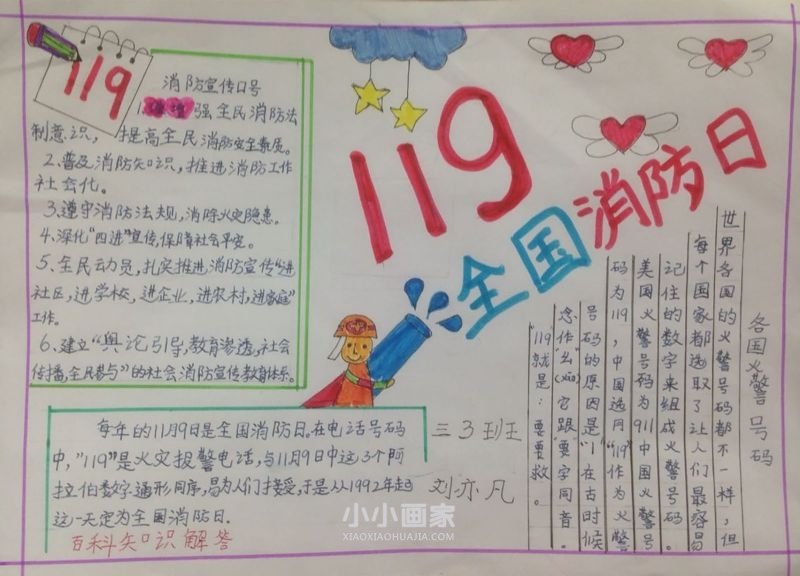 119
消防宣传口号
1.增强全民消防法
制意识，提高全民消防安全素质。
2、普及消防知识，推进消防工作
社会化。
3、遵守消防法规，消除火灾隐患。
4、深化“四进”宣传，保障社会平安。
5、全民动员，扎实推进消防宣传“进
社区，进学校，进企业，进农村，进家庭”
工作。
6、建立“舆论引导，教育渗透，社会
传播，全民参与”的社会消防宣传教育体系。
119
全国消防日
各国火警号码
世界各国的火警号码都不一样，但
每个国家都选取了让人们最容易
记住的数字来组成火警号码。
美国火警号码为911中国火警号
码为119，中国选用“119”作为火警
号码的原因是“1”在古时候
念作幺(yāo)它跟“要”字同音。
“119”就是：要要救。
每年的11月9日是全国消防日。在电话号码
中，“119”是火灾报警电话，与11月9日中这3个阿
拉伯数字通形同序，易为人们接受，于是从1992年起
这一天定为全国消防日。
百科知识解答
三3班
刘亦凡
小小画家
XIAOXIAOHUAJIA.COM